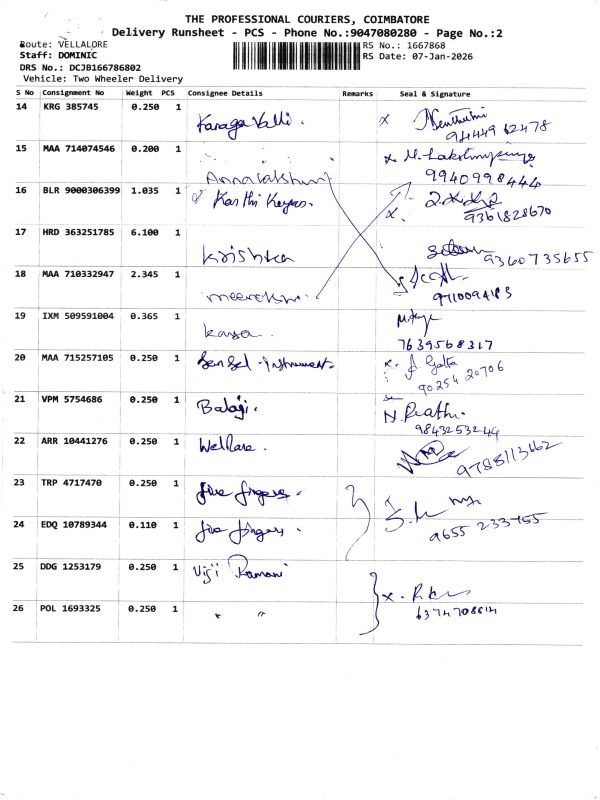 THE PROFESSIONAL COURIERS, COIMBATORE
Delivery Runsheet - PCS - Phone No.:9047080280 - Page No.:2
Route: VELLALORE RS No.: 1667868
Staff: DOMINIC RS Date: 07-Jan-2026
DRS No.: DCJB166786802
Vehicle: Two Wheeler Delivery
S No Consignment No Weight PCS Consignee Details Remarks Seal & Signature
14 KRG 385745 0.250 1 Kanaga Valli. x
94449 62478
15 MAA 714074546 0.200 1 Annalakshmi x
9940998444
16 BLR 9000306399 1.035 1 Karthi x.
9361828670
17 HRD 363251785 6.100 1 Krishka 9360735655
18 MAA 710332947 2.345 1
9710094183
19 IXM 509591004 0.365 1
7639568317
20 MAA 715257105 0.250 1 Sensel Instrument. x.
90254 20706
21 VPM 5754686 0.250 1 Balaji.
9843253244
22 ARR 10441276 0.250 1 Welkare. 9788113662
23 TRP 4717470 0.250 1 five fingers.
24 EDQ 10789344 0.110 1 five fingers.
9655 233455
25 DDG 1253179 0.250 1 Viji Ramani x.
26 POL 1693325 0.250 1 " "